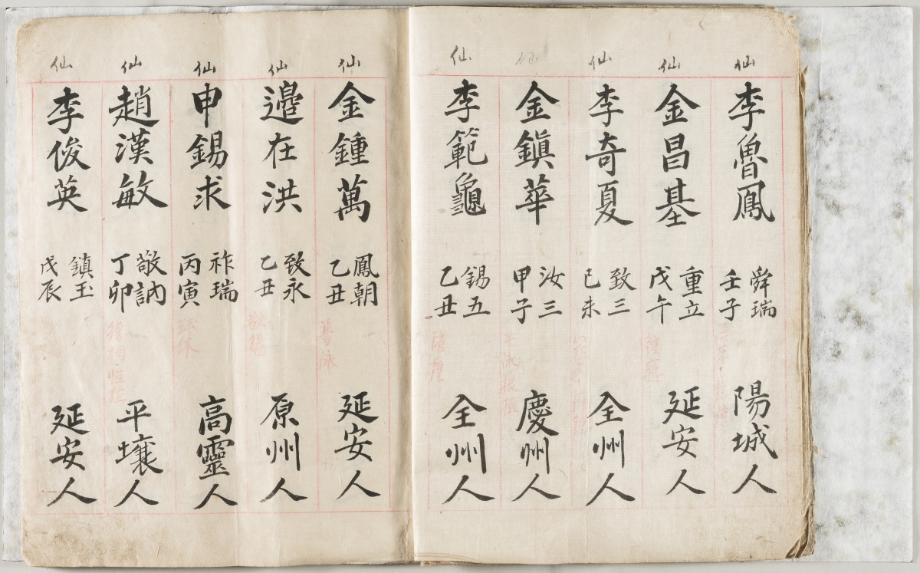 仙
李魯鳳
舜瑞
壬子
陽城人
仙
金昌基
重立
戊午
延安人
仙
李奇夏
致三
己未
全州人
仙
金鎭華
汝三
甲子
慶州人
仙
李範龜
錫五
乙丑
全州人
仙
金鍾萬
鳳朝
乙丑
延安人
仙
邉在洪
致永
乙丑
原州人
仙
申錫求
祚瑞
丙寅
高靈人
仙
趙漢敏
敬訥
丁卯
平壤人
仙
李俊英
鎮玉
戊辰
延安人